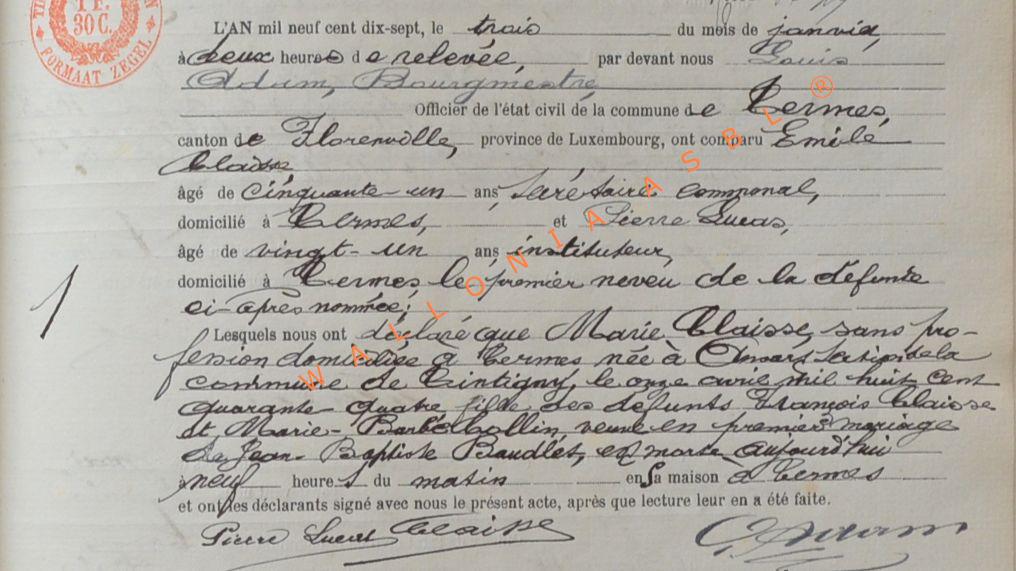 1 F.
30 C.
FORMAAT ZEGEL
L'AN mil neuf cent dix-sept, le trois du mois de janvier,
à deux heures de relevée, par devant nous Louis
Adam, Bourgmestre,
Officier de l'état civil de la commune de Termes,
canton de Florenville, province de Luxembourg, ont comparu Emile
Claisse
âgé de cinquante-un ans, secrétaire communal,
domicilié à Termes, et Pierre Lucas,
âgé de vingt-un ans instituteur,
domicilié à Termes le premier neveu de la défunte
ci-après nommée;
Lesquels nous ont déclaré que Marie Claisse, sans pro-
fession domiciliée à Termes née à de la
commune de Tintigny, le onze avril mil huit cent
quarante-quatre, fille des défunts François Claisse
et Marie-Barbe Collin, veuve en premier mariage
de Jean-Baptiste Baudlet, est morte aujourd'hui
à neuf heures du matin en sa maison à Termes
et ont les déclarants signé avec nous le présent acte, après que lecture leur en a été faite.
Pierre Lucas Claisse L. Adam
WALLONIA ASBL ®
1